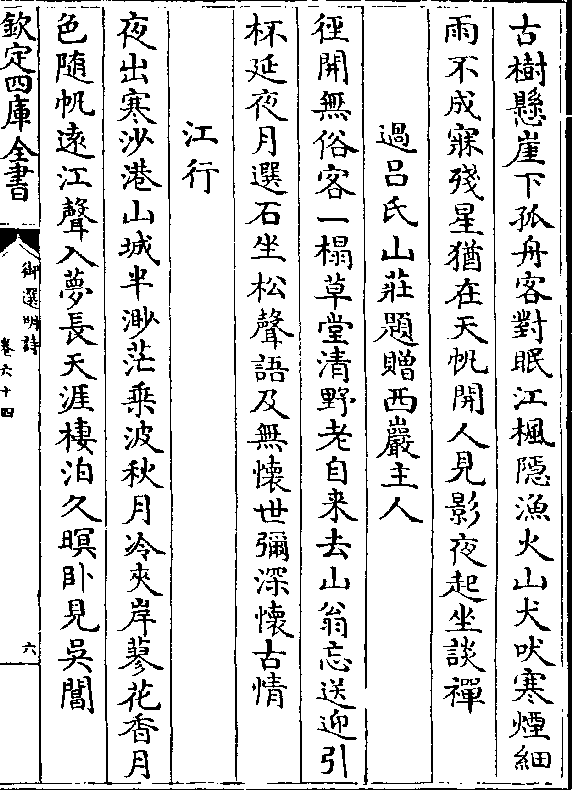 古樹懸崖下孤舟客對眠江楓隱漁火山犬吠寒煙細
雨不成寐殘星猶在天帆開人見影夜起坐談禪
過呂氏山莊題贈西巖主人
徑開無俗客一榻草堂清野老自来去山翁忘送迎引
杯延夜月選石坐松聲語及無懐世彌深懐古情
江行
夜出寒沙港山城半渺茫乗波秋月冷夾岸蓼花香月
色随帆遠江聲入夢長天涯棲泊久暝卧見吳閶
欽定四庫全書
御選明詩
卷六十四
六